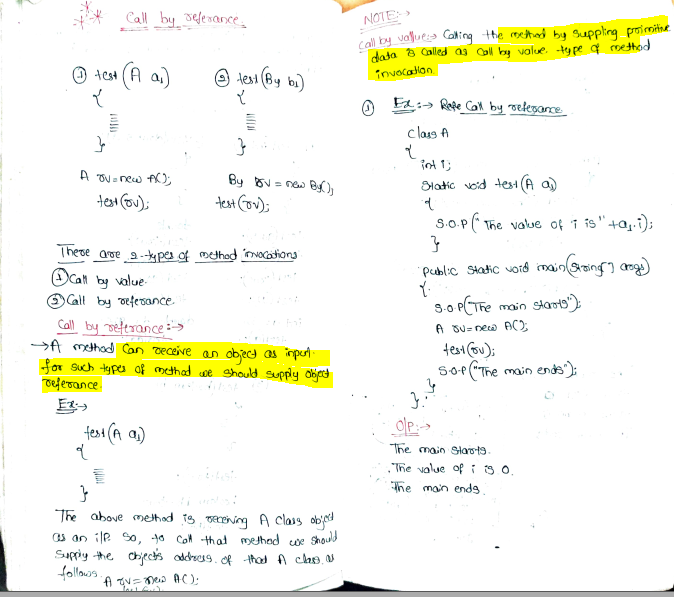 Call by referance
① test (A a1)
{
}
A rv = new A();
test (rv);
② test (By b1)
{
}
By rv = new By();
test (rv);
There are 2-types of method invocations
① Call by value.
② Call by referance.
Call by referance:→
→ A method Can receive an object as input.
for such types of method we should supply object
referance.
Ex:→
test (A a1)
{
}
The above method is receiving A class object
as an i/p. So, to call that method we should
supply the object's address of that A class as
follows.
A rv = new A();
test (rv);
NOTE:→
Call by value:→ Calling the method by suppling primitive
data is called as call by value type of method
invocation.
① Ex:→ Call by referance
Class A
{
int i;
Static void test (A a1)
{
S.O.P (" The value of i is" +a1.i);
}
public static void main(String[] args)
{
S.O.P("The main starts");
A rv = new A();
test (rv);
S.O.P ("The main ends");
}
}
O/P:→
The main starts.
The value of i is 0.
The main ends.